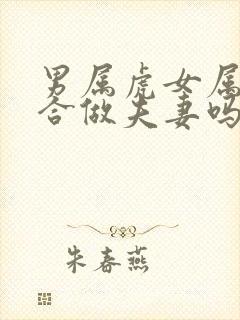 男属虎女属
合做夫妻吗
朱春燕